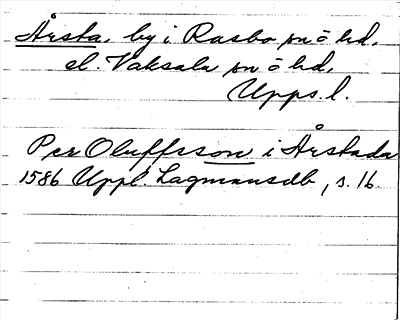 Årsta, by i Rasbo sn o hd,
el. Vaksala sn o hd,
Upps l.
Per Oluffsson i Årstada
1586 Uppl. Lagmansdb, s. 16.